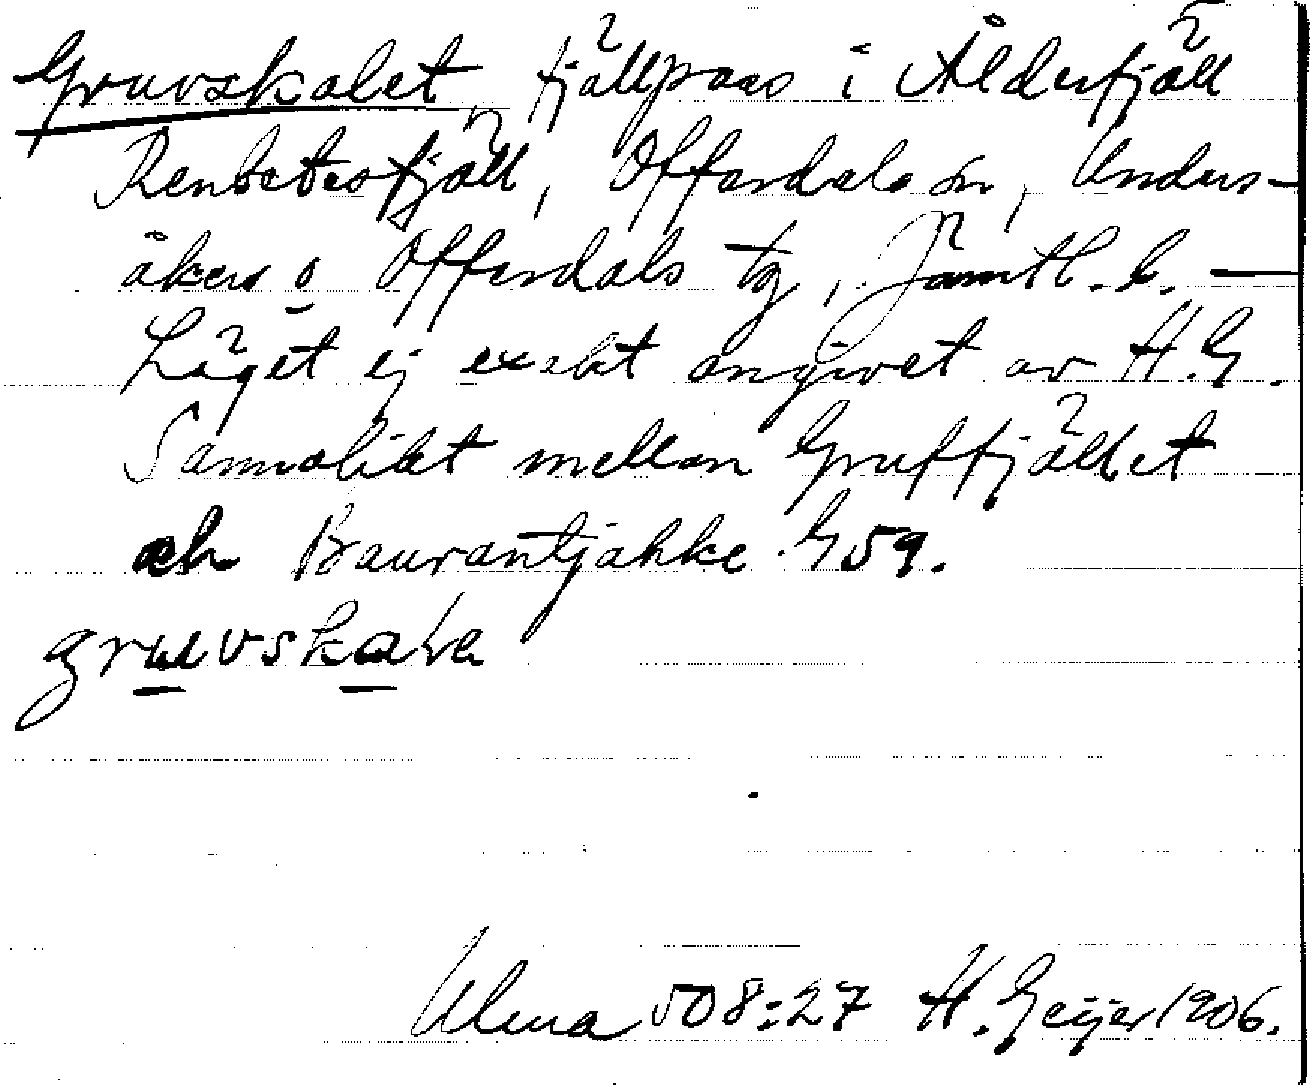 Gruvskalet, fjällpass i Ålderfjäll
Renbetesfjäll, Offerdals sn, Unders-
åkers o Offerdals tg, Jämtl. l. —
Läget ej exakt angivet av H.G.
Sannolikt mellan Gruffjället
och Baurantjahke G59.
gruvskaLa
Ulma 508:27 H. Geijer 1906.